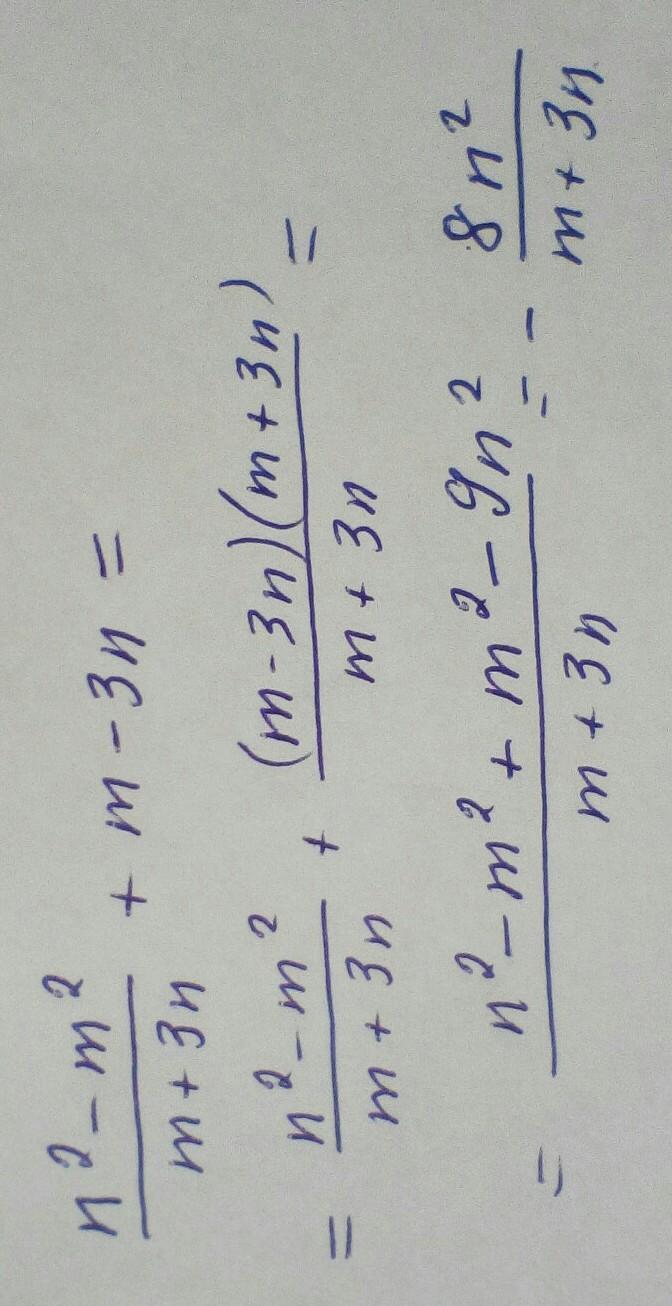 (n² - m²)/(m + 3n) + m - 3n =
= (n² - m²)/(m + 3n) + ((m - 3n)(m + 3n))/(m + 3n) =
= (n² - m² + m² - 9n²)/(m + 3n) = - (8n²)/(m + 3n)